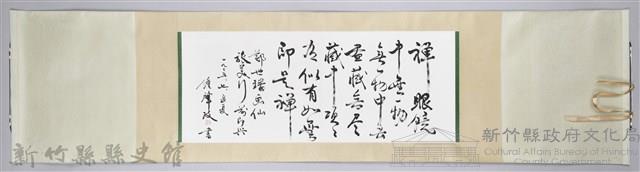 禪眼鏡
中無一物
無一物中無
盡藏無尽
藏中
似有如無
即是禪
鄭世璠画仙
旅美行前
書
新竹縣縣史館
新竹縣政府文化局
Cultural Affairs Bureau of Hsinchu
County Government